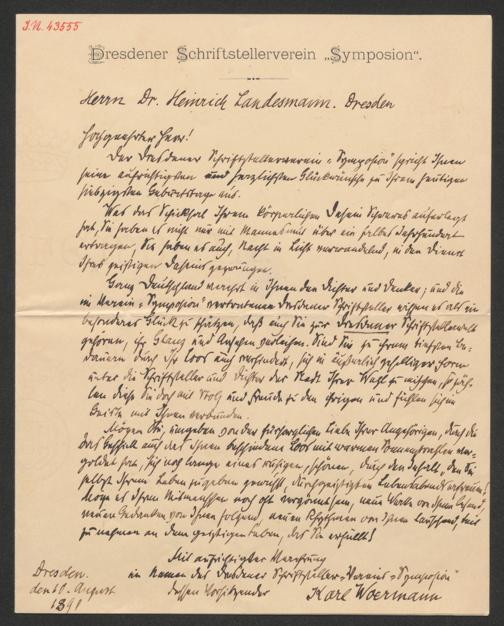 J.N. 43555
Dresdener Schriftstellerverein „Symposion“.
Herrn Dr. Heinrich Landesmann. Dresden
Hochgeehrter Herr!
Der Dresdener Schriftstellerverein „Symposion“ spricht Ihnen
seine aufrichtigsten und herzlichsten Glückwünsche zu Ihrem heutigen
siebzigsten Geburtstage aus.
Was das Schicksal Ihrem körperlichen Dasein Schweres auferlegt
hat, Sie haben es nicht nur mit Mannesmut über ein halbes Jahrhundert
ertragen, Sie haben es auch, Nacht in Licht verwandelnd, in den Dienst
Ihres geistigen Daseins gezwungen.
Ganz Deutschland verehrt in Ihnen den Dichter und Denker; und die
im Verein „Symposion“ vertretenen Dresdener Schriftsteller wissen es als ein
besonderes Glück zu schätzen, daß auch Sie zur Dresdener Schriftstellerwelt
gehören, ihr Glanz und Ansehen verleihen. Sind Sie zu ihrem tiefsten Be-
dauern durch Ihr Loos auch verhindert, sich in äußerlich geselliger Form
unter die Schriftsteller und Dichter der Stadt Ihrer Wahl zu mischen, so zäh-
len diese Sie doch mit Stolz und Freude zu den Ihrigen und fühlen sich im
Geiste mit Ihnen verbunden.
Mögen Sie, umgeben von der fürsorglichen Liebe Ihrer Angehörigen, durch die
das Geschick auch das Ihnen beschiedene Loos mit warmen Sonnenstrahlen ver-
goldet hat, sich noch lange eines ruhigen, schönen, durch den Inhalt, den Sie
selbst Ihrem Leben zugeben gewußt, durchgeistigten Lebensabends erfreuen!
Möge es Ihren Mitmenschen noch oft vergönnt sein, neue Werke von Ihnen
neuen Gedanken von Ihnen folgend, neuen Rhythmen von Ihnen lauschend, teil
zu nehmen an dem geistigen Leben, das Sie erfüllt!
Mit aufrichtigster Verehrung
im Namen des Dresdener Schriftsteller-Vereins „Symposion“
dessen Vorsitzender
Karl Woermann
Dresden.
August
1891